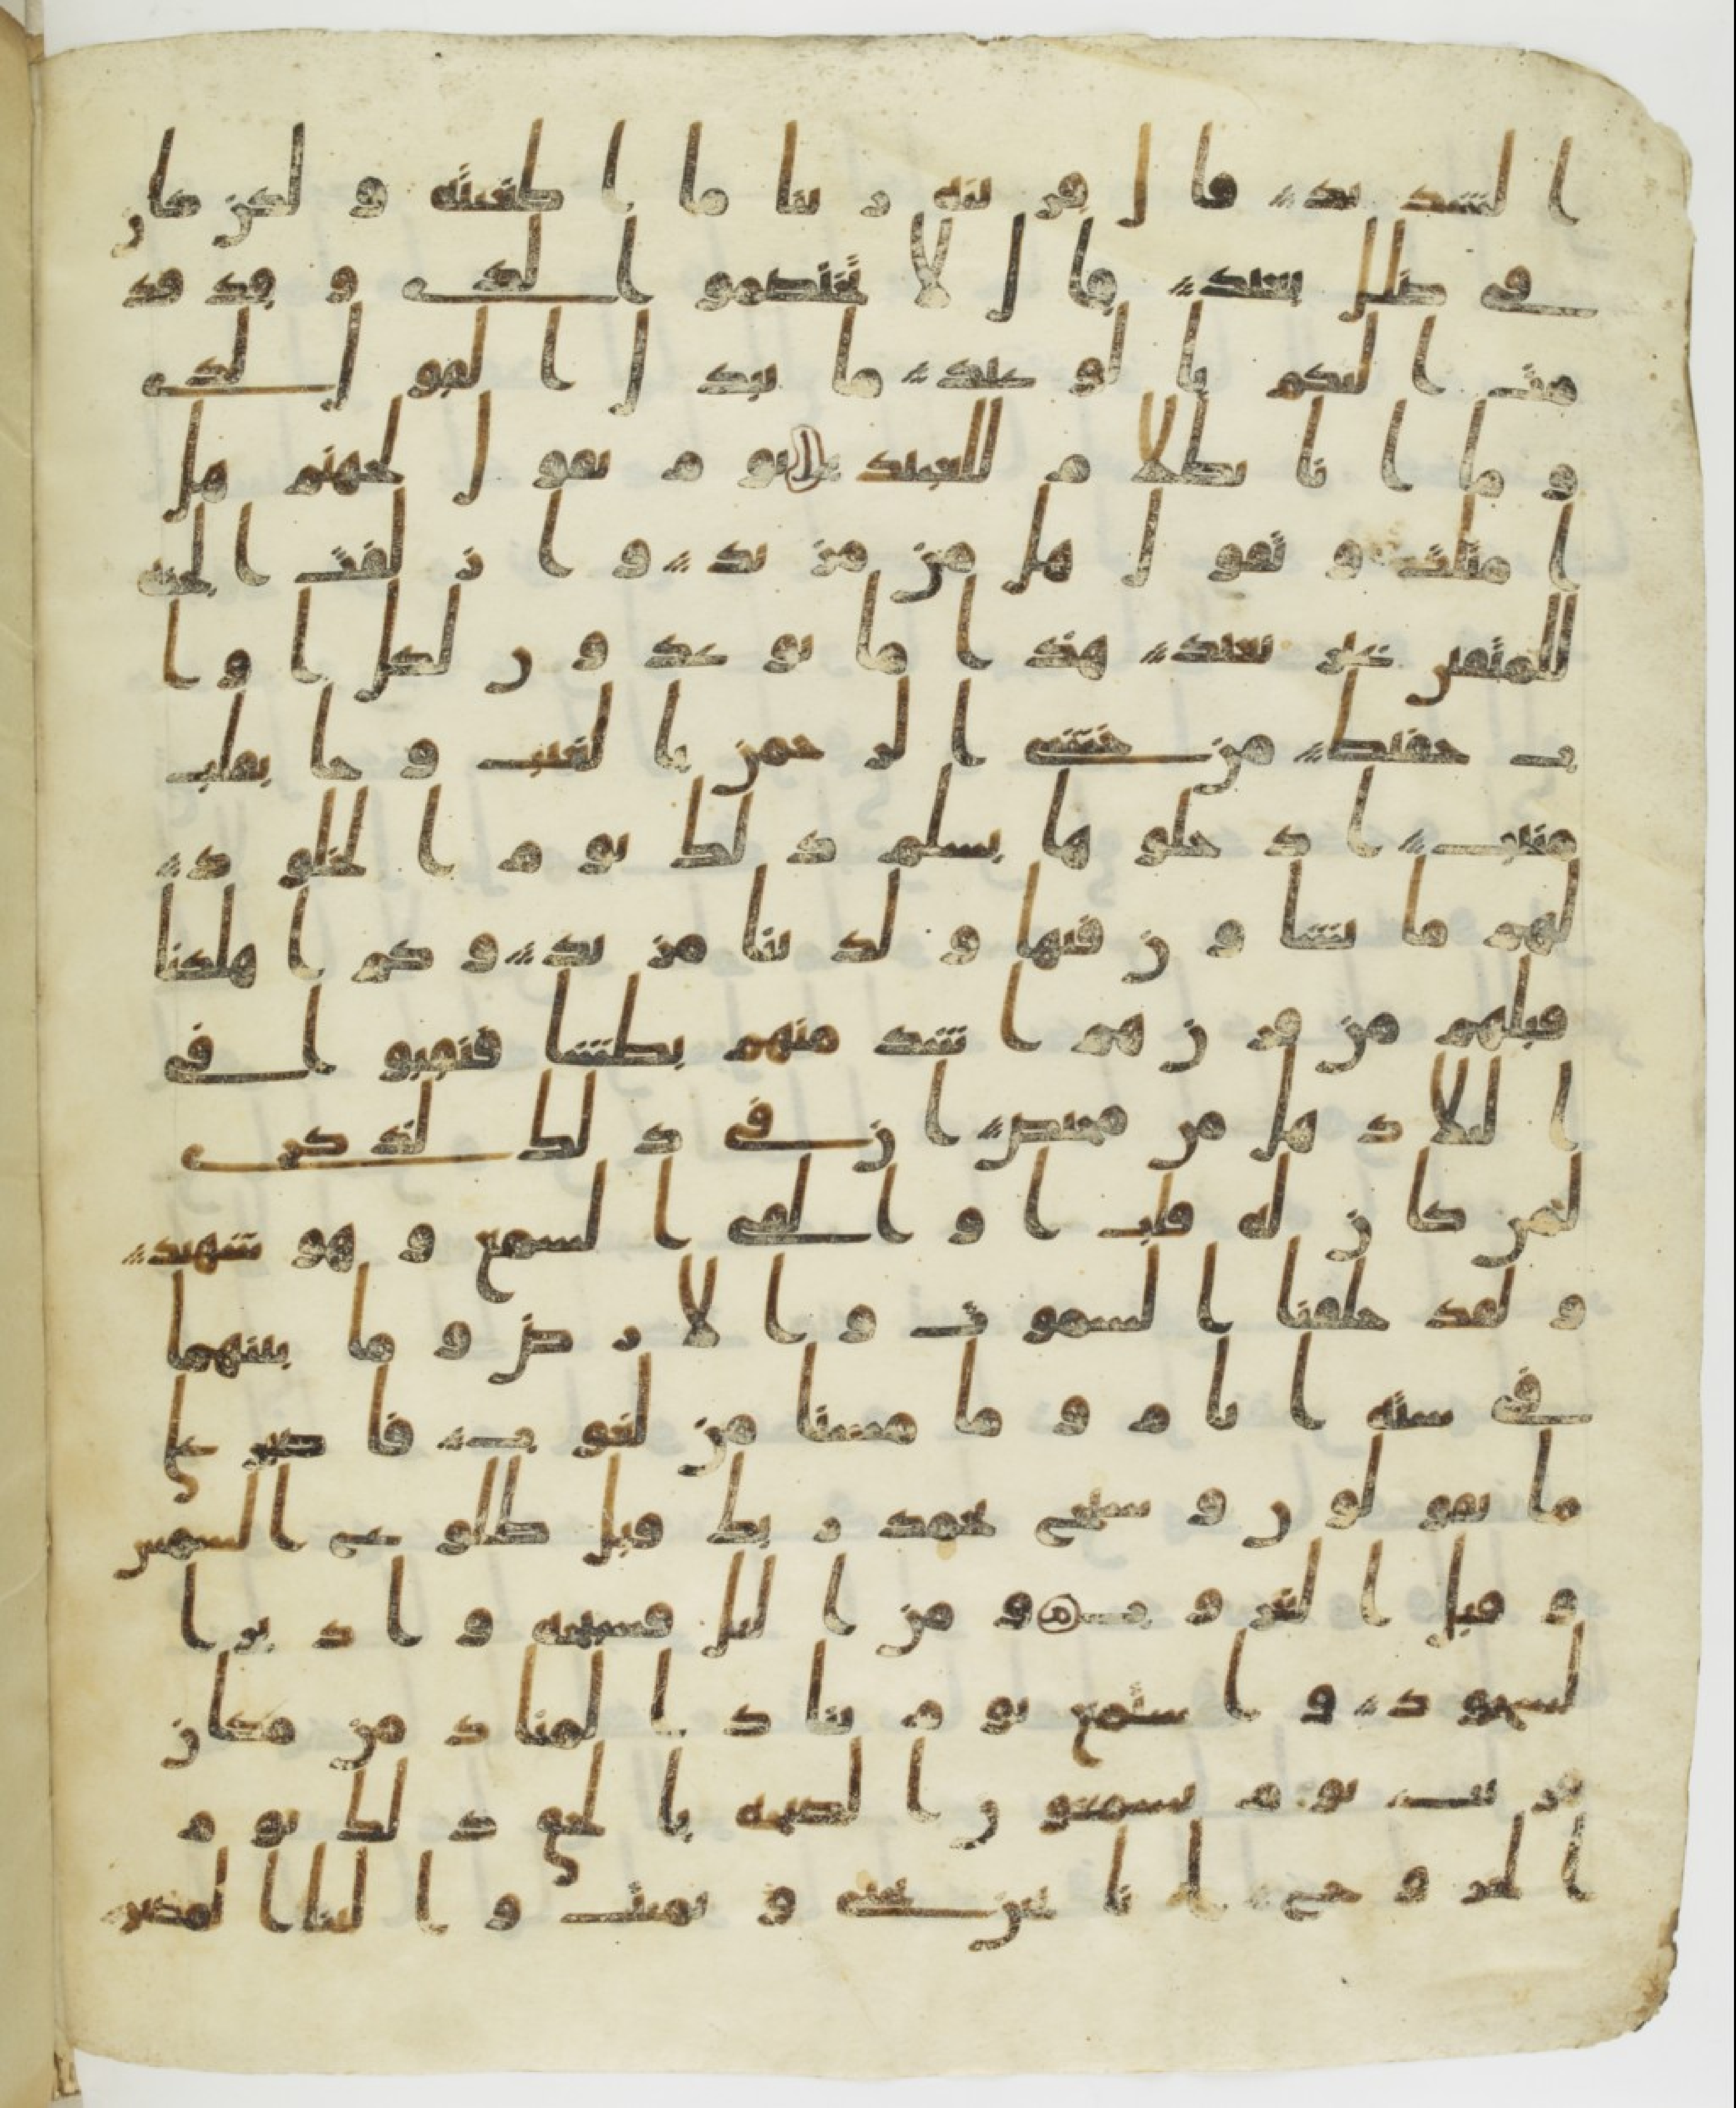 الشديد قال قرينه ربنا ما اطغيته ولكن كان
في ضلل بعيد قال لا تختصموا لدى وقد قد
مت اليكم بالوعيد ما يبدل القول لدى
وما انا بظلام للعبيد يوم نقول لجهنم هل
امتلت وتقول هل من مزيد وازلفت الجنه
للمتقين غير بعيد هذا ما توعدون لكل اوا
ب حفيظ من خشى الرحمن بالغيب وجا بقلب
منيب ادخلوها بسلم ذلك يوم الخلود
لهم ما يشاون فيها ولدينا مزيد وكم اهلكنا
قبلهم من قرن هم اشد منهم بطشا فنقبوا في
البلاد هل من محيص ان في ذلك لذكرى
لمن كان له قلب او القى السمع وهو شهيد
ولقد خلقنا السموت والارض وما بينهما
في سته ايام وما مسنا من لغوب فاصبر على
ما يقولون وسبح بحمد ربك قبل طلوع الشمس
وقبل الغروب ومن اليل فسبحه وادبر ا
لسجود واستمع يوم يناد المناد من مكان
قريب يوم يسمعون الصيحه بالحق ذلك يوم
الخروج انا نحن نحى ونميت والينا المصير